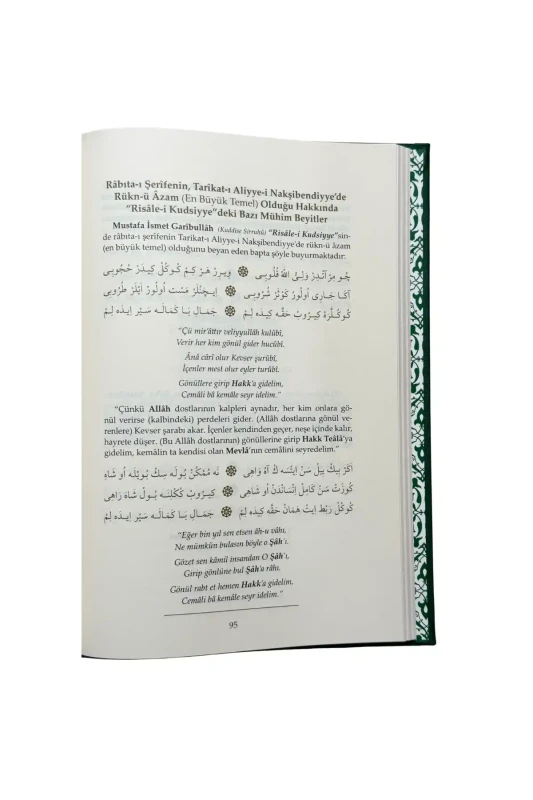 Râbıta-ı Şerîfenin, Tarîkat-ı Aliyye-i Nakşibendiyye'de
Rükn-ü Âzam (En Büyük Temel) Olduğu Hakkında
"Risâle-i Kudsiyye"deki Bazı Mühim Beyitler
Mustafa İsmet Garîbullâh (Kuddise Sirruhû) "Risâle-i Kudsiyye"sin-
de râbıta-ı şerîfenin Tarîkat-ı Aliyye-i Nakşibendiyye'de rükn-ü âzam
(en büyük temel) olduğunu beyan eden bapta şöyle buyurmaktadır:
چُو مِرْاٰتْدِرْ وَلِيُّ اللّٰهْ قُلُوبِى ۞ وِيرِرْ هَرْ كِمْ كُوكُلْ كِيدَرْ حُجُوبِى
اٰكَا جَارِى اُولُورْ كَوْثَرْ شُرُوبِى ۞ اِيچَنْلَرْ مَسْت اُولُورْ اَيْلَرْ طُرُوبِى
كُوكُلْلَرَه كِيرُوبْ حَقَّه كِيدَه لِمْ ۞ جَمَالِ بَا كَمَالَه سَيْر اِيدَه لِمْ
"Çü mir'âttır veliyyullâh kulûbi,
Verir her kim gönül gider hucûbi.
Âna cârî olur Kevser şurûbi.
İçenler mest olur eyler turûbi.
Gönüllere girip Hakk'a gidelim,
Cemâli bâ kemâle seyr idelim."
"Çünkü Allâh dostlarının kalpleri aynadır, her kim onlara gö-
nül verirse (kalbindeki) perdeleri gider. (Allâh dostlarına gönül ve-
renlere) Kevser şarabı akar. İçenler kendinden geçer, neşe içinde kalır,
hayrete düşer. (Bu Allâh dostlarının) gönüllerine girip Hakk Teâlâ'ya
gidelim, kemâlin ta kendisi olan Mevlâ'nın cemâlini seyredelim."
اَكَرْ بِيكْ يِيلْ سَنْ اِيتْسَه كْ اٰهُ وَاهِى ۞ نَه مُمْكِنْ بُولَه سِكْ بُويْلَه اُو شَاه
كُوزَتْ سَنْ كَامِلْ اِنْسَانْدَنْ اُو شَاهِى ۞ كِيرُوبْ كُكْلِنَه بُولْ شَاهَ رَاهِى
كُوكُلْ رَبْط اِيتْ هَمَانْ حَقَّه كِيدَه لِمْ ۞ جَمَالِ بَا كَمَالَه سَيْر اِيدَه لِمْ
"Eğer bin yıl sen etsen âh-u vâhı,
Ne mümkün bulasın böyle o Şâh'ı.
Gözet sen kâmil insandan O Şâh'ı,
Girip gönlüne bul Şâh'a râhı.
Gönül rabt et hemen Hakk'a gidelim,
Cemâli bâ kemâle seyr idelim."
95